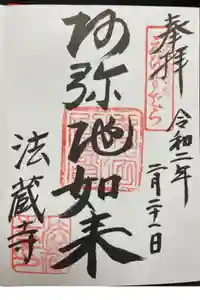 奉拝
令和二年
二月二十一日
阿弥陀如来
法蔵寺